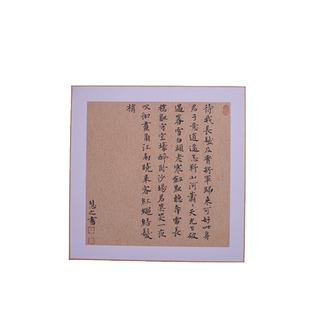 待我長髮及腰將軍歸來可好此身
君子意逍遙怎料山河蕭蕭天光乍破
遇暮雪白頭老寒劍默聽奔雷長
槍獨守空壕醉臥沙場君莫笑一夜
吹徹畫角江南晚來客紅繩結髮
梢